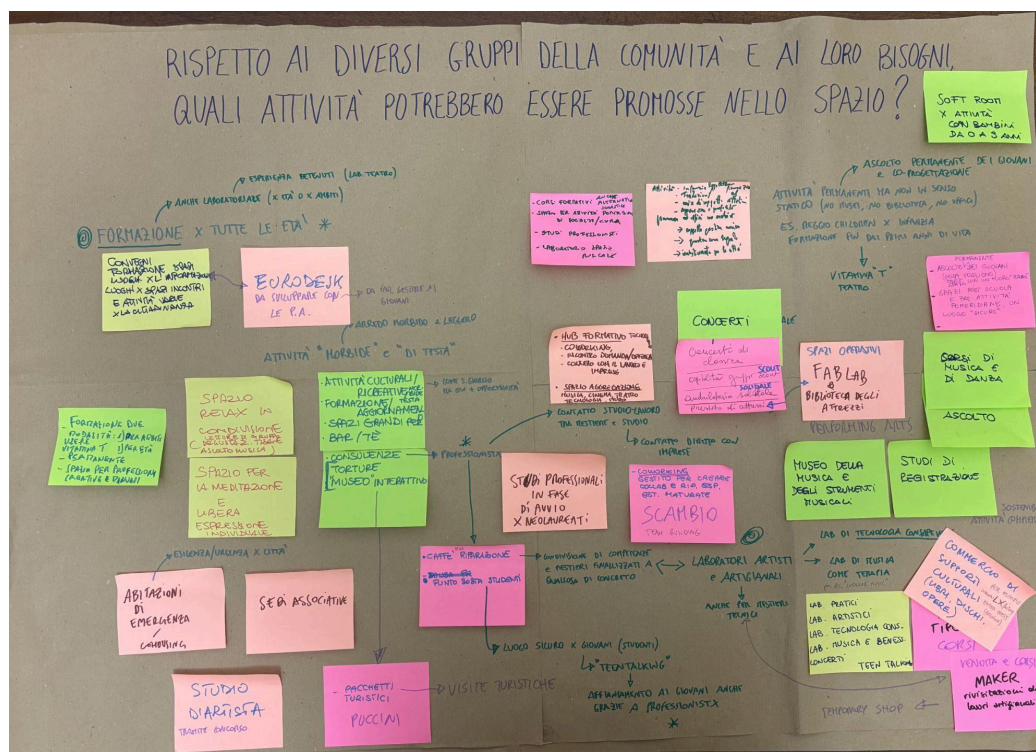 RISPETTO AI DIVERSI GRUPPI DELLA COMUNITÀ E AI LORO BISOGNI,
QUALI ATTIVITÀ POTREBBERO ESSERE PROMOSSE NELLO SPAZIO?
SOFT ROOM
X ATTIVITÀ
CON BAMBINI
DA 0 A 3 ANNI
ESPERIENZA DETENUTI (LAB. TEATRO)
ANCHE LABORATORIALE (X ETÀ O X AMBITI)
FORMAZIONE X TUTTE LE ETÀ *
CONVEGNI
FORMAZIONE SPAZI
LUOGHI X L'INFORMAZIONE
LUOGHI X SPAZI INCONTRI
E ATTIVITÀ VARIE
X LA CITTADINANZA
EURODESK
DA SVILUPPARE CON
LE P.A.
DA FAR GESTIRE AI
GIOVANI
ARREDO MORBIDO E LEGGERO
ATTIVITÀ "MORBIDE" e "DI TESTA"
- CORSI FORMATIVI
- STUDI PROFESSIONISTI
- LABORATORIO SPAZIO
MUSICALE
ASCOLTO PERMANENTE DEI GIOVANI
E CO-PROGETTAZIONE
ATTIVITÀ PERMANENTI MA NON IN SENSO
STATICO (NO MUSEI, NO BIBLIOTECA, NO UFFICI)
ES. REGGIO CHILDREN X INFANZIA
FORMAZIONE FIN DAI PRIMI ANNI DI VITA
VITAMINA "T"
TEATRO
PERMANENTE
- ASCOLTO DEI GIOVANI
- SPAZI POST SCUOLA
E PER ATTIVITÀ
POMERIDIANE, UN
LUOGO "SICURO"
- HUB FORMATIVO
- COWORKING,
- INCONTRO DOMANDA/OFFERTA
- CORRELATO CON IL LAVORO E
IMPRESE
- SPAZIO AGGREGAZIONE
MUSICA, CINEMA, TEATRO
CONCERTI
Concerto di
classica
ospitalità gruppi scout
SCOUT
ambulatorio solidale
SOLIDALE
SPAZI OPERATIVI
FAB LAB
BIBLIOTECA DEGLI
ATTREZZI
PERFORMING ARTS
CORSI DI
MUSICA E
DI DANZA
ASCOLTO
- FORMAZIONE DUE
MODALITÀ:
VITAMINA T
- PERMANENTE
- SPAZIO PER PROFESSIONI
CREATIVE E GIOVANI
SPAZIO
RELAX IN
CONDIVISIONE
ASCOLTO MUSICA)
SPAZIO PER
LA MEDITAZIONE
E
LIBERA
ESPRESSIONE
INDIVIDUALE
- ATTIVITÀ CULTURALI/
RICREATIVE
- FORMAZIONE/
AGGIORNAMEN
- SPAZI GRANDI PER
BAR/TÈ
- CONSULENZE
TORTURE
MUSEO INTERATTIVO
PROFESSIONISTI
CONTATTO STUDIO-LAVORO
TRA MESTIERI E STUDIO
CONTATTO DIRETTO CON
IMPRESE
STUDI PROFESSIONALI
IN FASE
DI AVVIO
X NEOLAUREATI
- COWORKING
GESTITO PER CREARE
EST. MATURATE
SCAMBIO
MUSEO DELLA
MUSICA E
DEGLI STRUMENTI
MUSICALI
STUDI DI
REGISTRAZIONE
ESIGENZA/URGENZA X CITTÀ
ABITAZIONI
DI
EMERGENZA
COHOUSING
SEDI ASSOCIATIVE
- CAFFÈ RIPARAZIONE
- PUNTO SOSTA STUDENTI
CONDIVISIONE DI COMPETENZE
E MESTIERI FINALIZZATI A
QUALCOSA DI CONCRETO
LABORATORI ARTISTI
E ARTIGIANALI
ANCHE PER MESTIERI
TECNICI
LAB DI TECNOLOGIA
LAB DI MUSICA
COME TERAPIA
LAB. PRATICI
LAB. ARTISTICI
LAB. TECNOLOGIA CONS.
LAB. MUSICA E BENESS.
CONCERTI
TEEN TALKING
COMMERCIO DI
SUPPORTI
CULTURALI
(LIBRI, DISCHI,
OPERE)
CORSI
VENDITA E CORSI
MAKER
rivisitazioni di
lavori artigianali
TEMPORARY SHOP
LUOGO SICURO X GIOVANI (STUDENTI)
"TEEN TALKING"
AFFIANCAMENTO AI GIOVANI ANCHE
GRAZIE A PROFESSIONISTX
*
STUDIO
D'ARTISTA
TRAMITE CONCORSO
- PACCHETTI
TURISTICI
PUCCINI
VISITE TURISTICHE